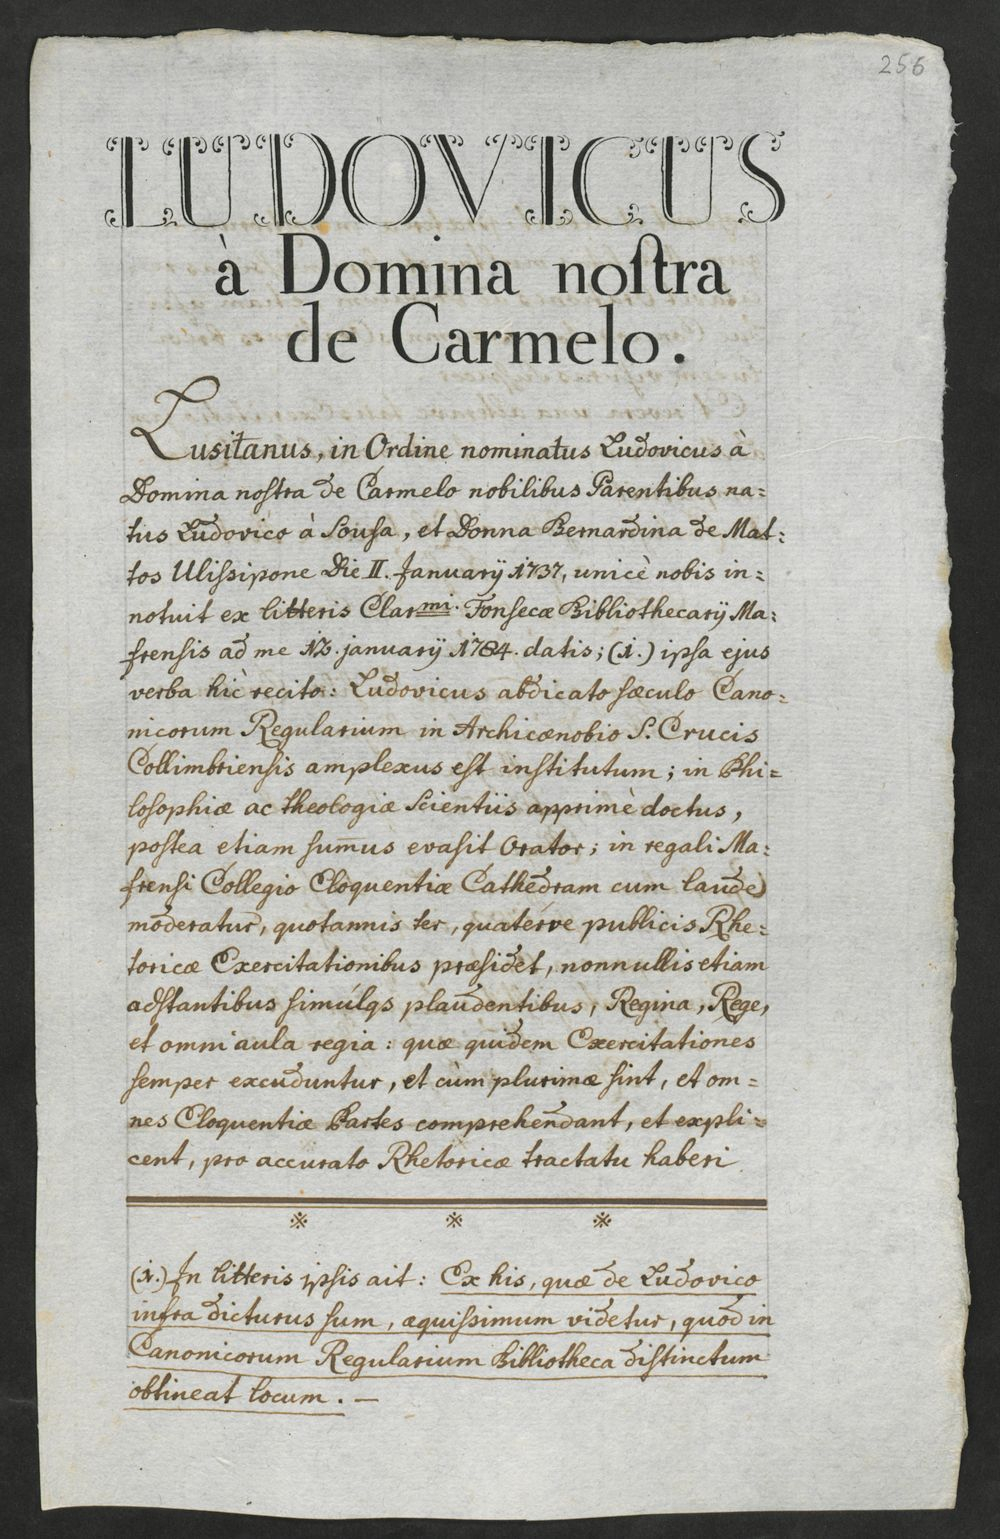 256
LUDOVICUS
à Domina noſtra
de Carmelo.
Lusitanus, in Ordine nominatus Ludovicus à
Domina noſtra de Carmelo nobilibus Parentibus na=
tus Ludovico à Souſa, et Donna Bernardina de Mat=
tos Uliſsipone Die II. Januarÿ 1737, unicè nobis in=
notuit ex litteris Clarmi. Fonſecæ Bibliothecarÿ Ma=
frenſis ad me 13. januarÿ 1784. datis; (1.) ipſa ejus
verba hìc recito: Ludovicus abdicato ſæculo Cano=
nicorum Regularium in Archicœnobio S. Crucis
Collimbrienſis amplexus eſt inſtitutum; in Phi=
loſophiæ ac theologiæ ſcientiis apprimè doctus,
poſtea etiam ſum̄us evaſit Orator; in regali Ma=
frenſi Collegio Eloquentiæ Cathedram cum laude
moderatur, quotannis ter, quatérve publicis Rhe=
toricæ Exercitationibus præſidet, nonnullis etiam
adſtantibus ſimúlqs plaudentibus, Regina, Rege,
et omni aula regia: quæ quidem Exercitationes
ſemper excuduntur, et cùm plurimæ ſint, et om=
nes Eloquentiæ Partes comprehendant, et expli=
cent, pro accurato Rhetoricæ tractatu haberi
※ ※ ※
(1.) In litteris ipſis ait: Ex his, quæ de Ludovico
infra dicturus ſum, æquiſsimum videtur, quod in
Canonicorum Regularium Bibliotheca diſtinctum
obtineat locum. —